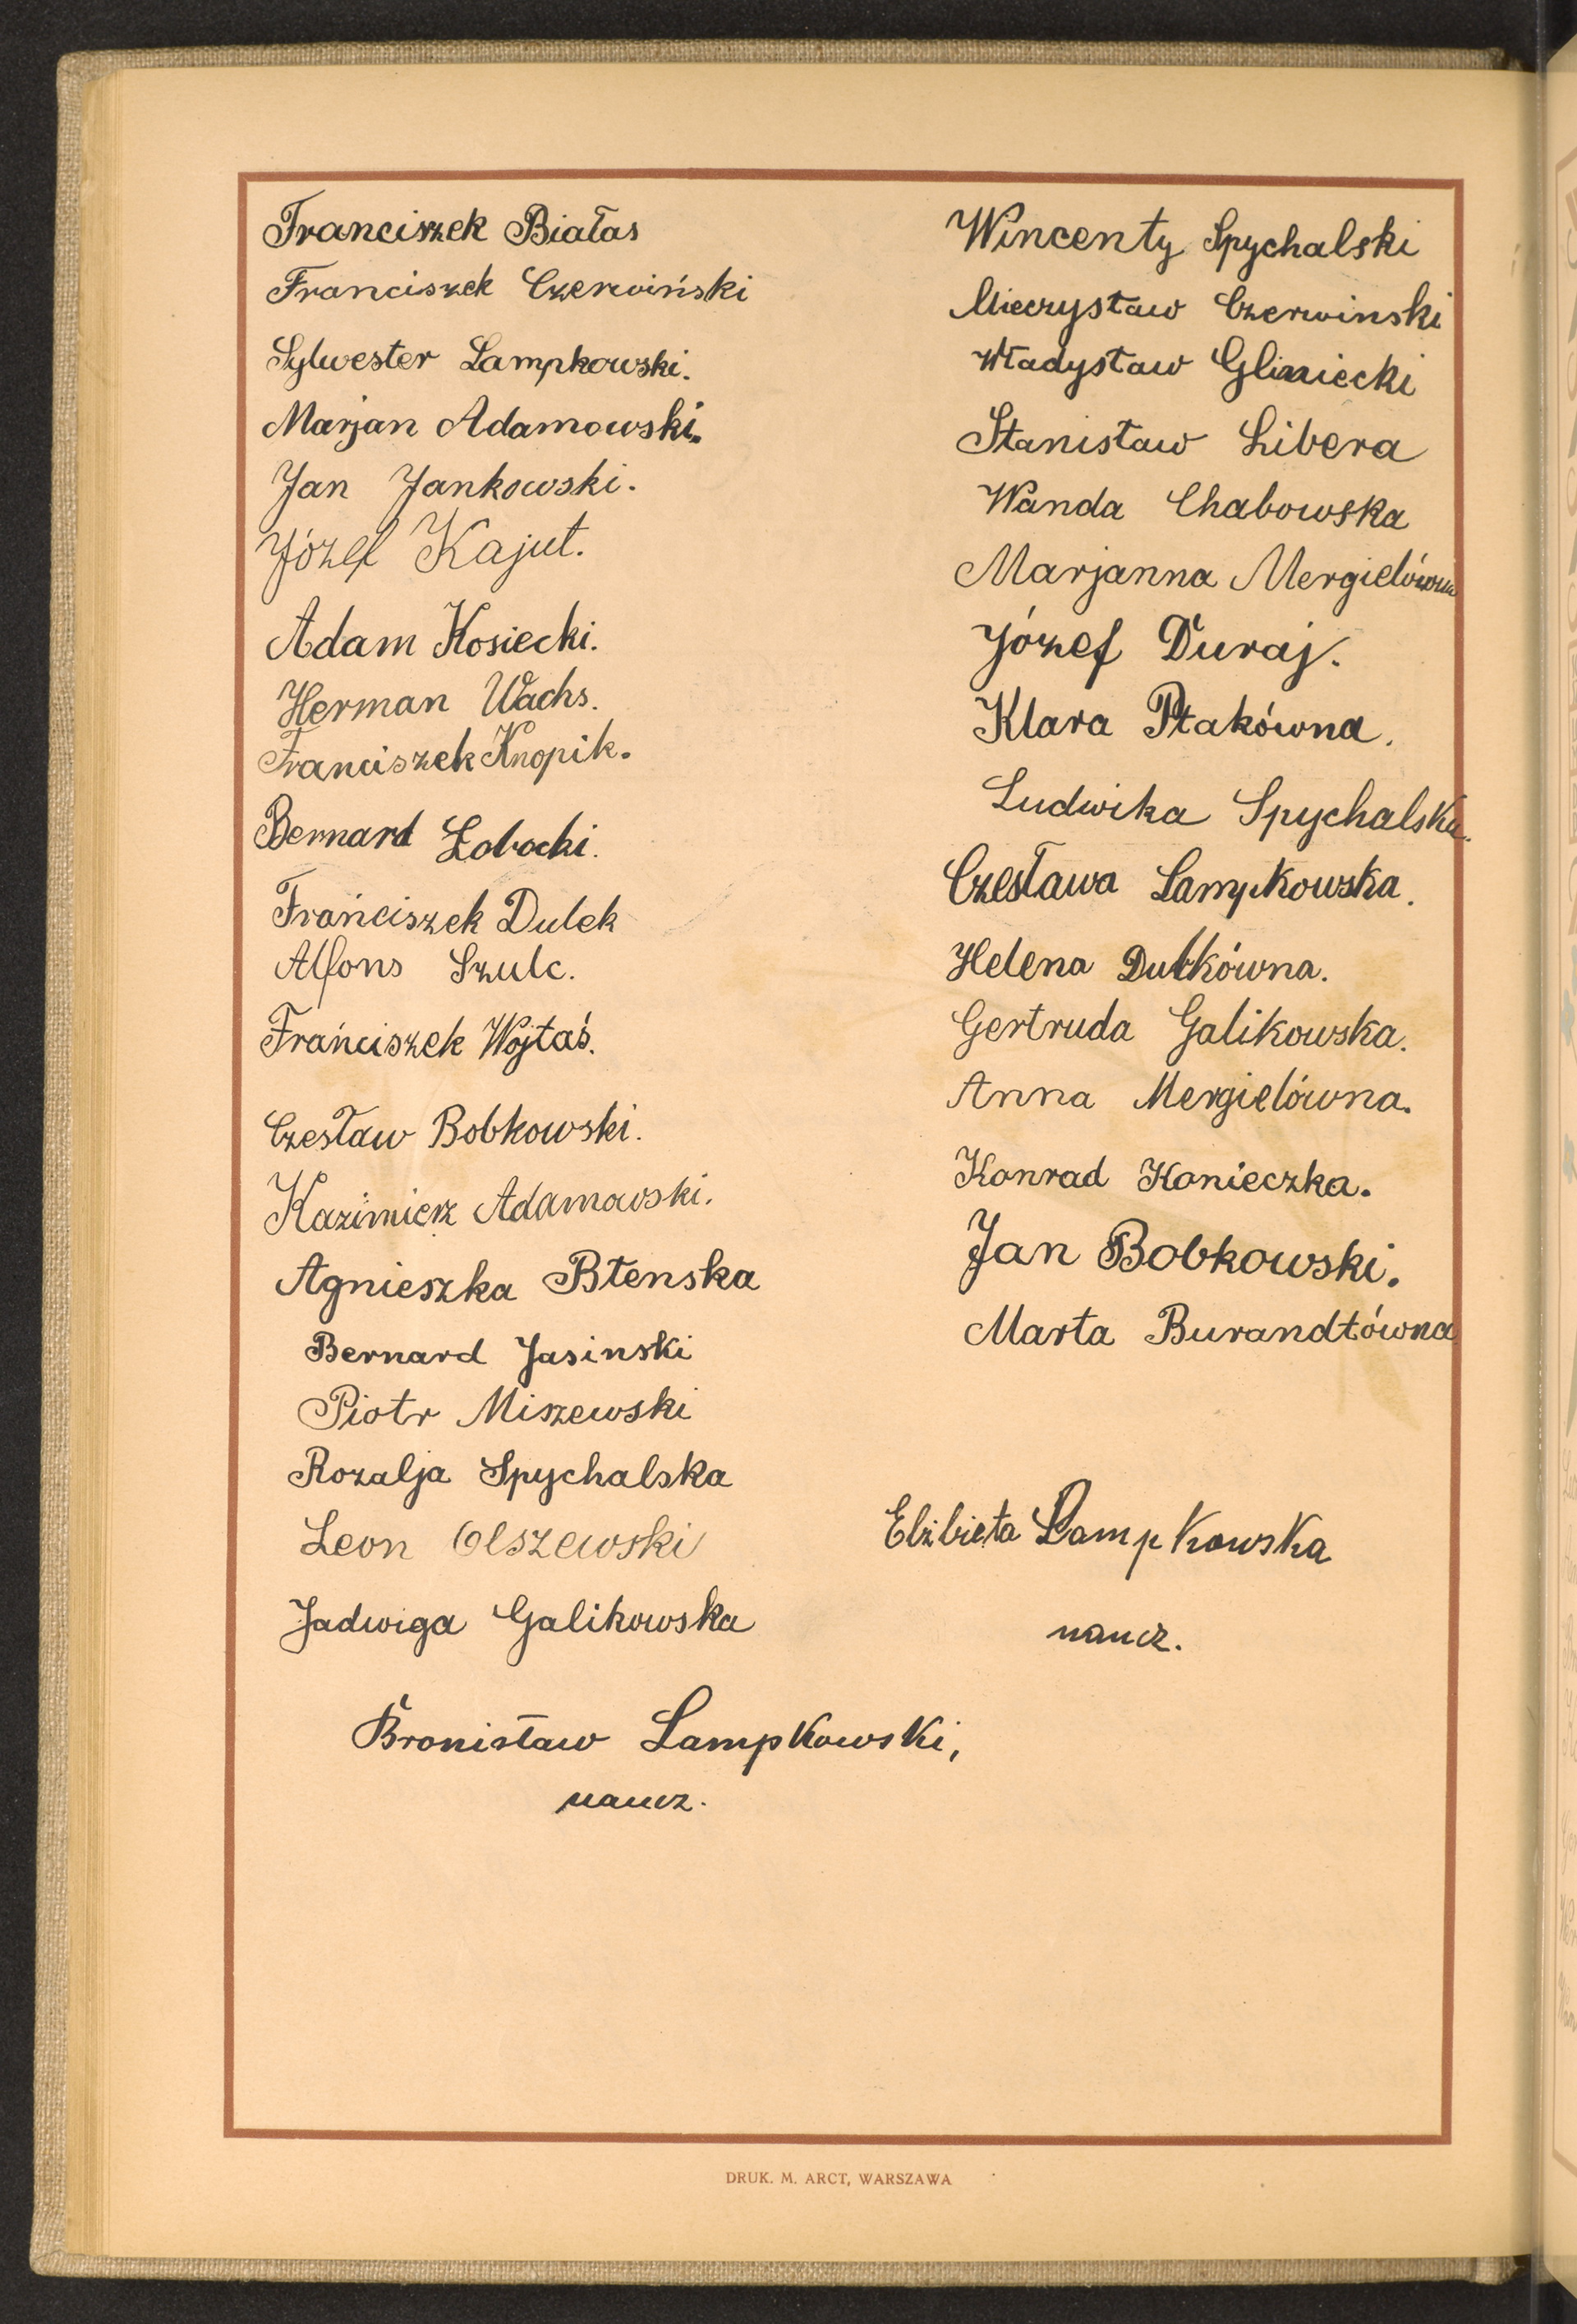 Franciszek Białas
Franciszek Czerwiński
Sylwester Lampkowski.
Marjan Adamowski.
Jan Jankowski.
Józef Kajut.
Adam Kosiecki.
Herman Wachs.
Franciszek Knopik.
Bernard Łobocki.
Franciszek Dulek
Alfons Szulc.
Franciszek Wojtaś.
Czesław Bobkowski.
Kazimierz Adamowski.
Agnieszka Błenska
Bernard Jasinski
Piotr Miszewski
Rozalja Spychalska
Leon Olszewski
Jadwiga Galikowska
Bronisław Lampkowski,
naucz.
Wincenty Spychalski
Mieczysław Czerwinski
Władysław Gliniecki
Stanisław Libera
Wanda Chabowska
Marjanna Mergielówna
Józef Duraj.
Klara Ptakówna.
Ludwika Spychalska.
Czesława Lampkowska.
Helena Dulkówna.
Gertruda Galikowska.
Anna Mergielówna.
Konrad Konieczka.
Jan Bobkowski.
Marta Burandtówna
Elżbieta Lampkowska
naucz.
DRUK. M. ARCT, WARSZAWA